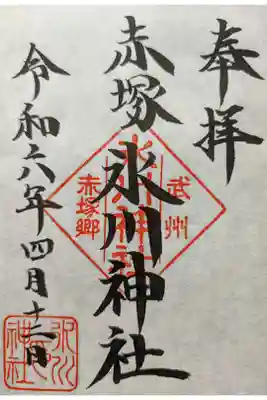 奉拝
武州
氷川神社
赤塚郷
赤塚氷川神社
令和六年四月十二日